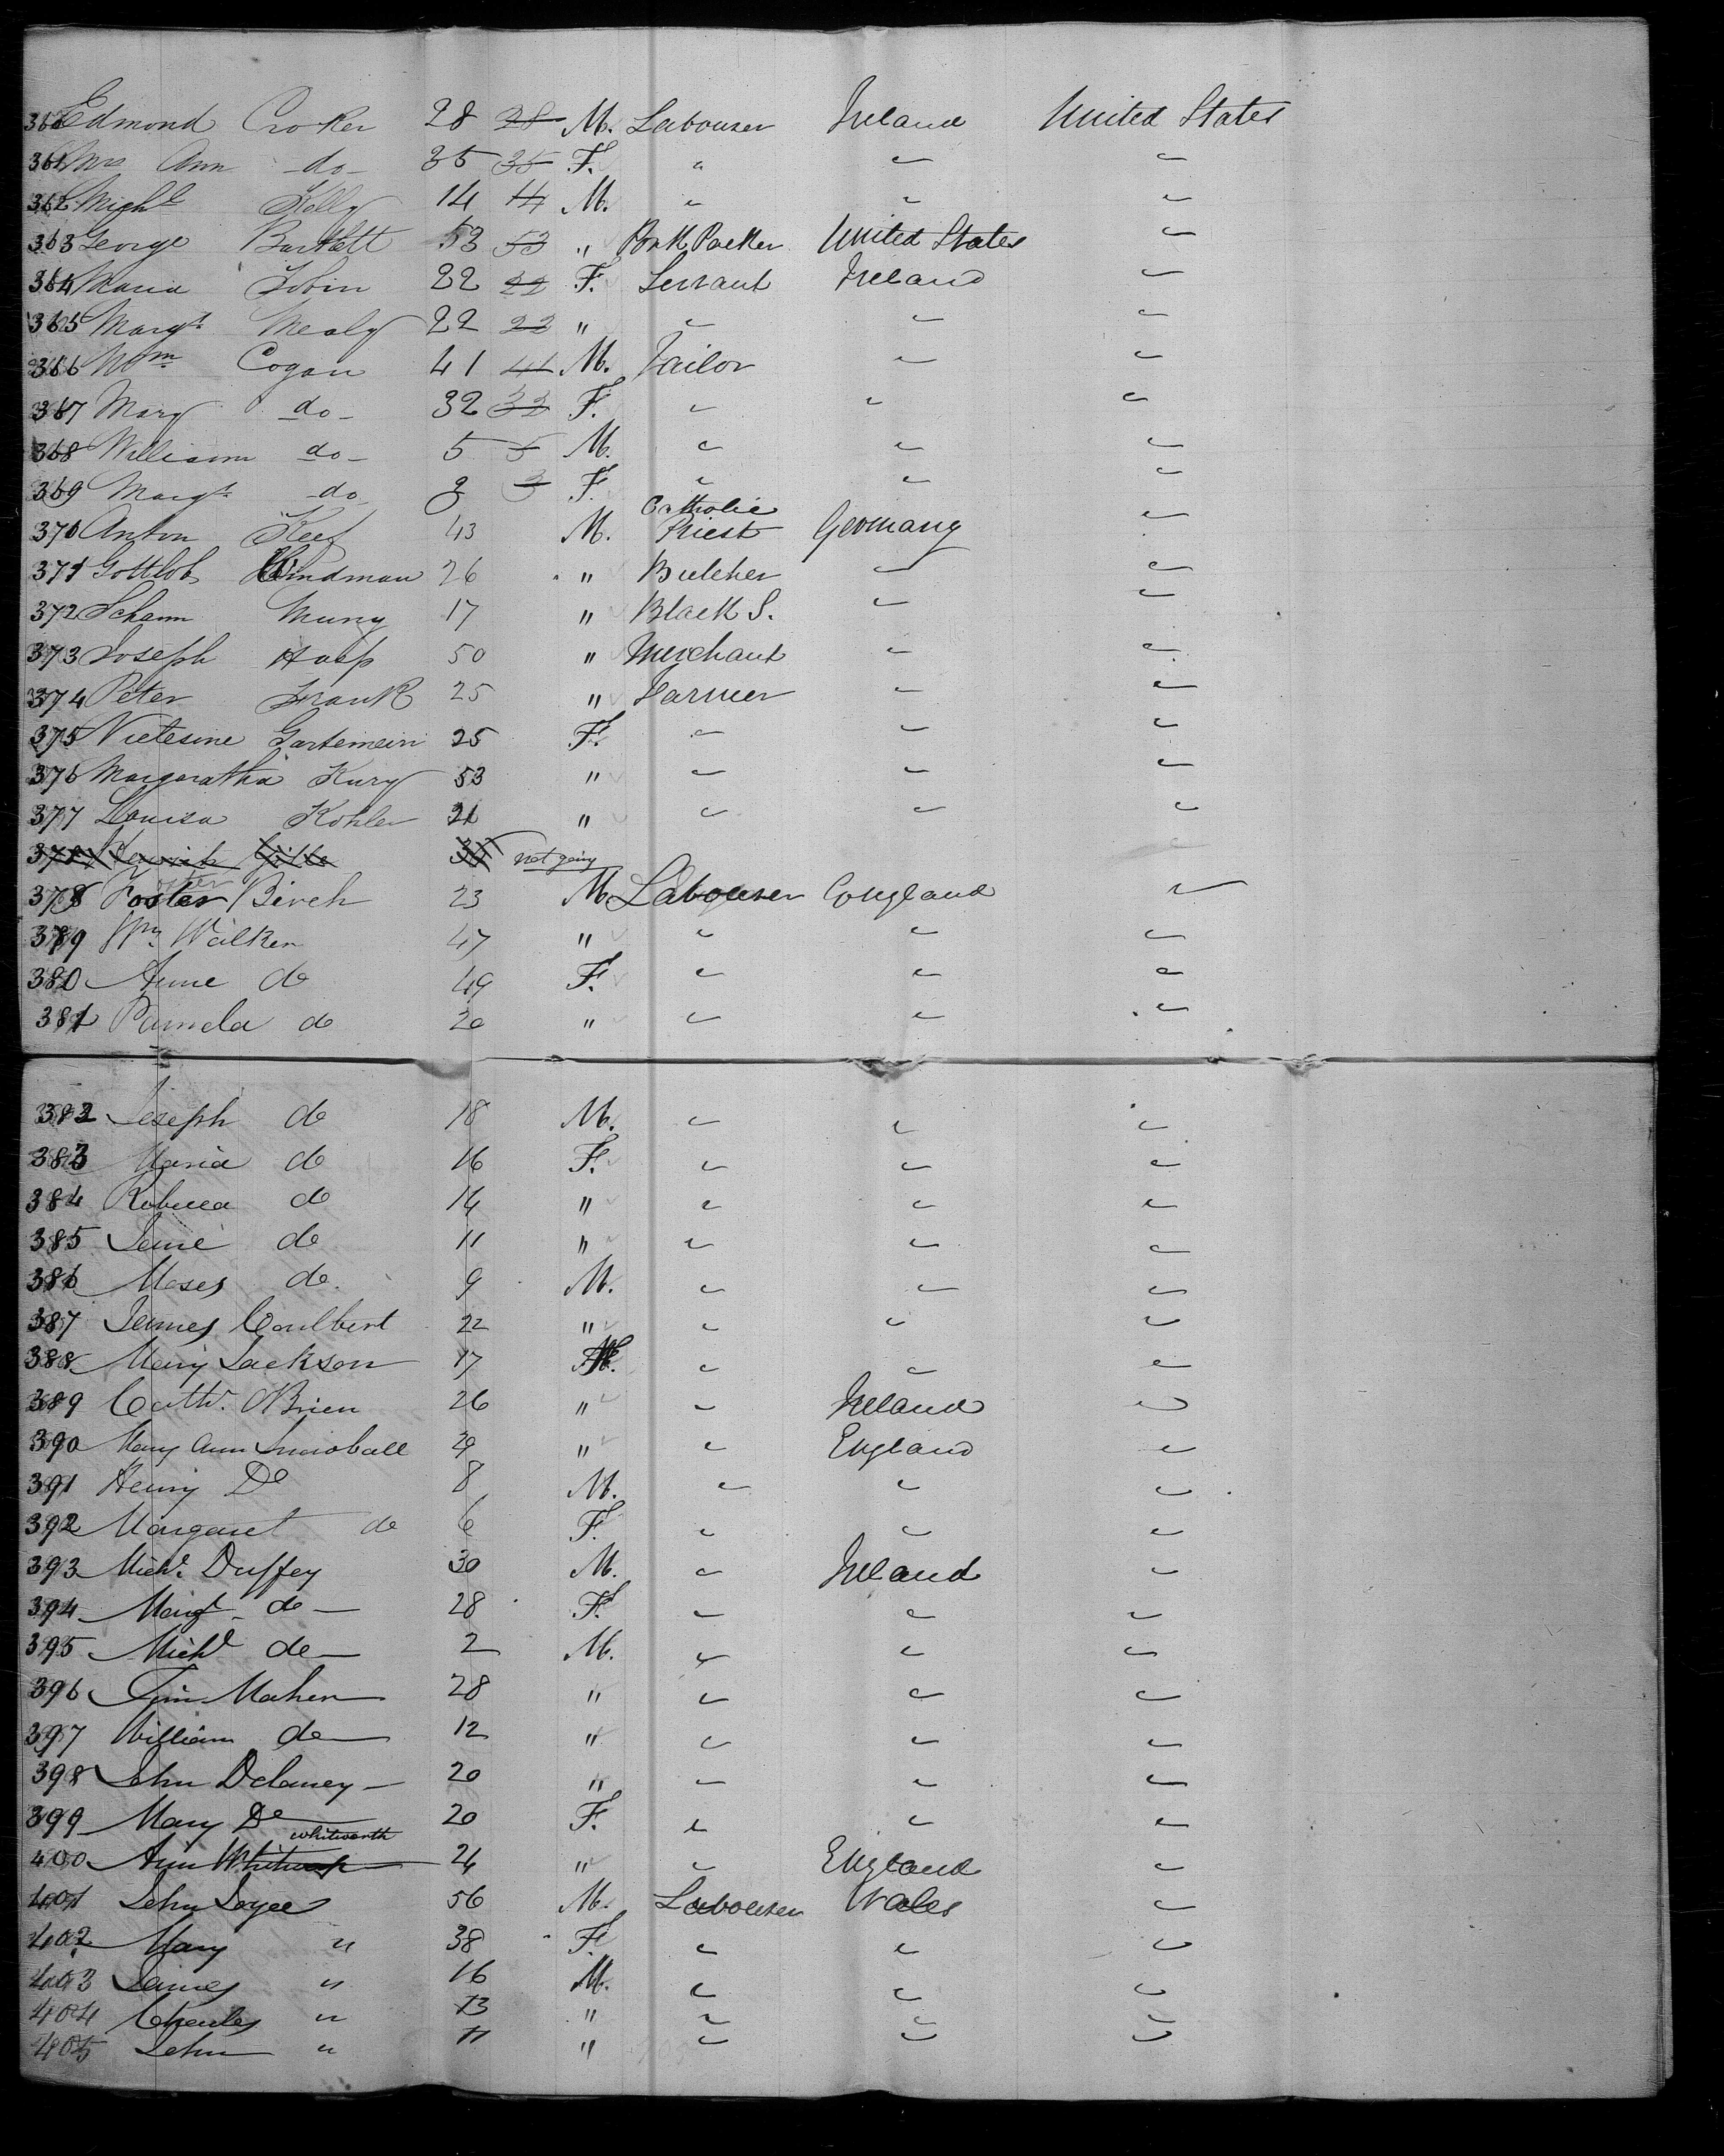 360 Edmond Croker 28 28 M. Labourer Ireland United States
361 Mrs Ann do 35 35 F. " " "
362 Mighl Kelly 14 14 M. " " "
363 George Bartlett 53 53 " Pork Packer United States "
364 Maria Tobin 22 22 F. Servant Ireland "
365 Margt Mealy 22 22 " " " "
366 Wm Cogan 41 41 M. Tailor " "
367 Mary do 32 32 F. " " "
368 William do 5 5 M. " " "
369 Margt do 3 F. " " "
370 Anton Keef 43 M. Catholic Priest Germany "
371 Gottlob Windman 26 " Butcher " "
372 Schann Muny 17 " Black S. " "
373 Joseph Haap 50 " Merchant " "
374 Peter Frank 25 " Farmer " "
375 25 F. " " "
376 Margaratha Kury 53 " " " "
377 Louisa Kohler 21 " " " "
378 not going
378 Foster Birch 23 M Labourer England "
379 Wm Walker 47 " " " "
380 Anne do 49 F. " " "
381 Pamela do 20 " " " "
382 Joseph do 18 M. " " "
383 Maria do 16 F. " " "
384 Rebecca do 14 " " " "
385 Jane do 11 " " " "
386 Moses do 9 M. " " "
387 James Coulbert 22 " " " "
388 Mary Jackson 17 F. " " "
389 Cathr. OBrien 26 " " Ireland "
390 Mary Ann Snowball 29 " " England "
391 Henry Do 8 M. " " "
392 Margaret do 6 F. " " "
393 Michl Duffey 30 M. " Ireland "
394 Margt do 28 F. " " "
395 Michl do 2 M. " " "
396 Tim Maher 28 " " " "
397 William do 12 " " " "
398 John Delaney 20 " " " "
399 Mary Do 20 F. " " "
400 Ann Whitworth 24 " " England "
401 John Joyce 56 M. Labourer Wales "
402 Mary " 38 F. " " "
403 James " 16 M. " " "
404 Charles " 13 " " " "
405 John " 11 " " " "